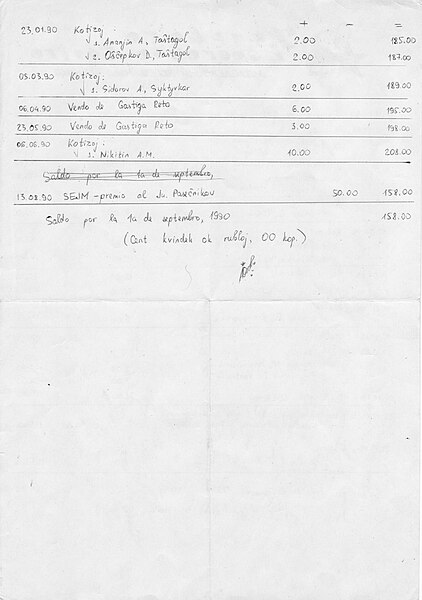 + - =
23.01.90 Kotizoj
1. Ananjin A., Taŝtagol 2.00 185.00
2. Oŝĉepkov D., Taŝtagol 2.00 187.00
03.03.90 Kotizoj:
1. Sidorov A, Syktyvkar 2.00 189.00
06.04.90 Vendo de Gastiga Reto 6.00 195.00
23.05.90 Vendo de Gastiga Reto 3.00 198.00
06.06.90 Kotizoj:
1. Nikitin A.M. 10.00 208.00
Saldo por la 1a de septembro,
13.08.90 SEJM-premio al Ju. Paseĉnikov 50.00 158.00
Saldo por la 1a de septembro, 1990 158.00
(Cent kvindek ok rubloj, 00 kop.)